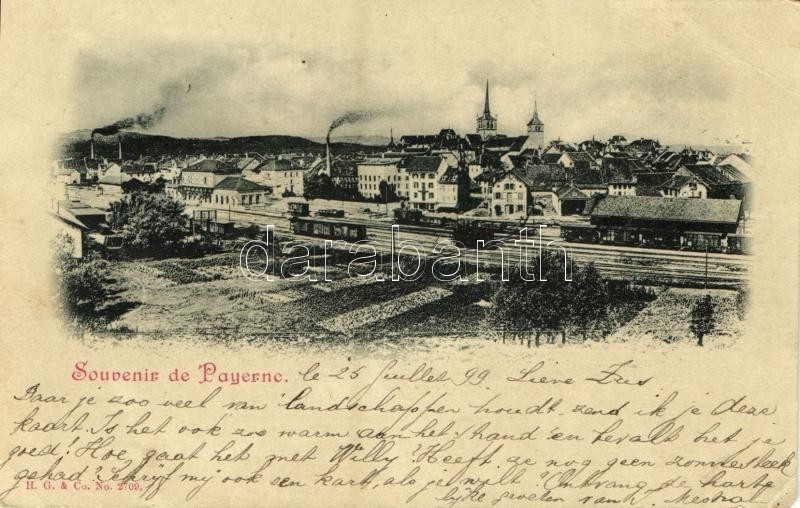 darabanth
Souvenir de Payerne. le 25 Juillet 99. Lieve Zus
Daar je zoo veel van landschappen houdt zend ik je deze
kaart. Is het ook zoo warm aan het strand en bevalt het je
goed! Hoe gaat het met Willy? Heeft ze nog geen zonnesteek
gehad? Schrijf mij ook een kaart, als je wilt. Ontvang de harte
H. G. & Co. No. 2709.
lijke groeten van